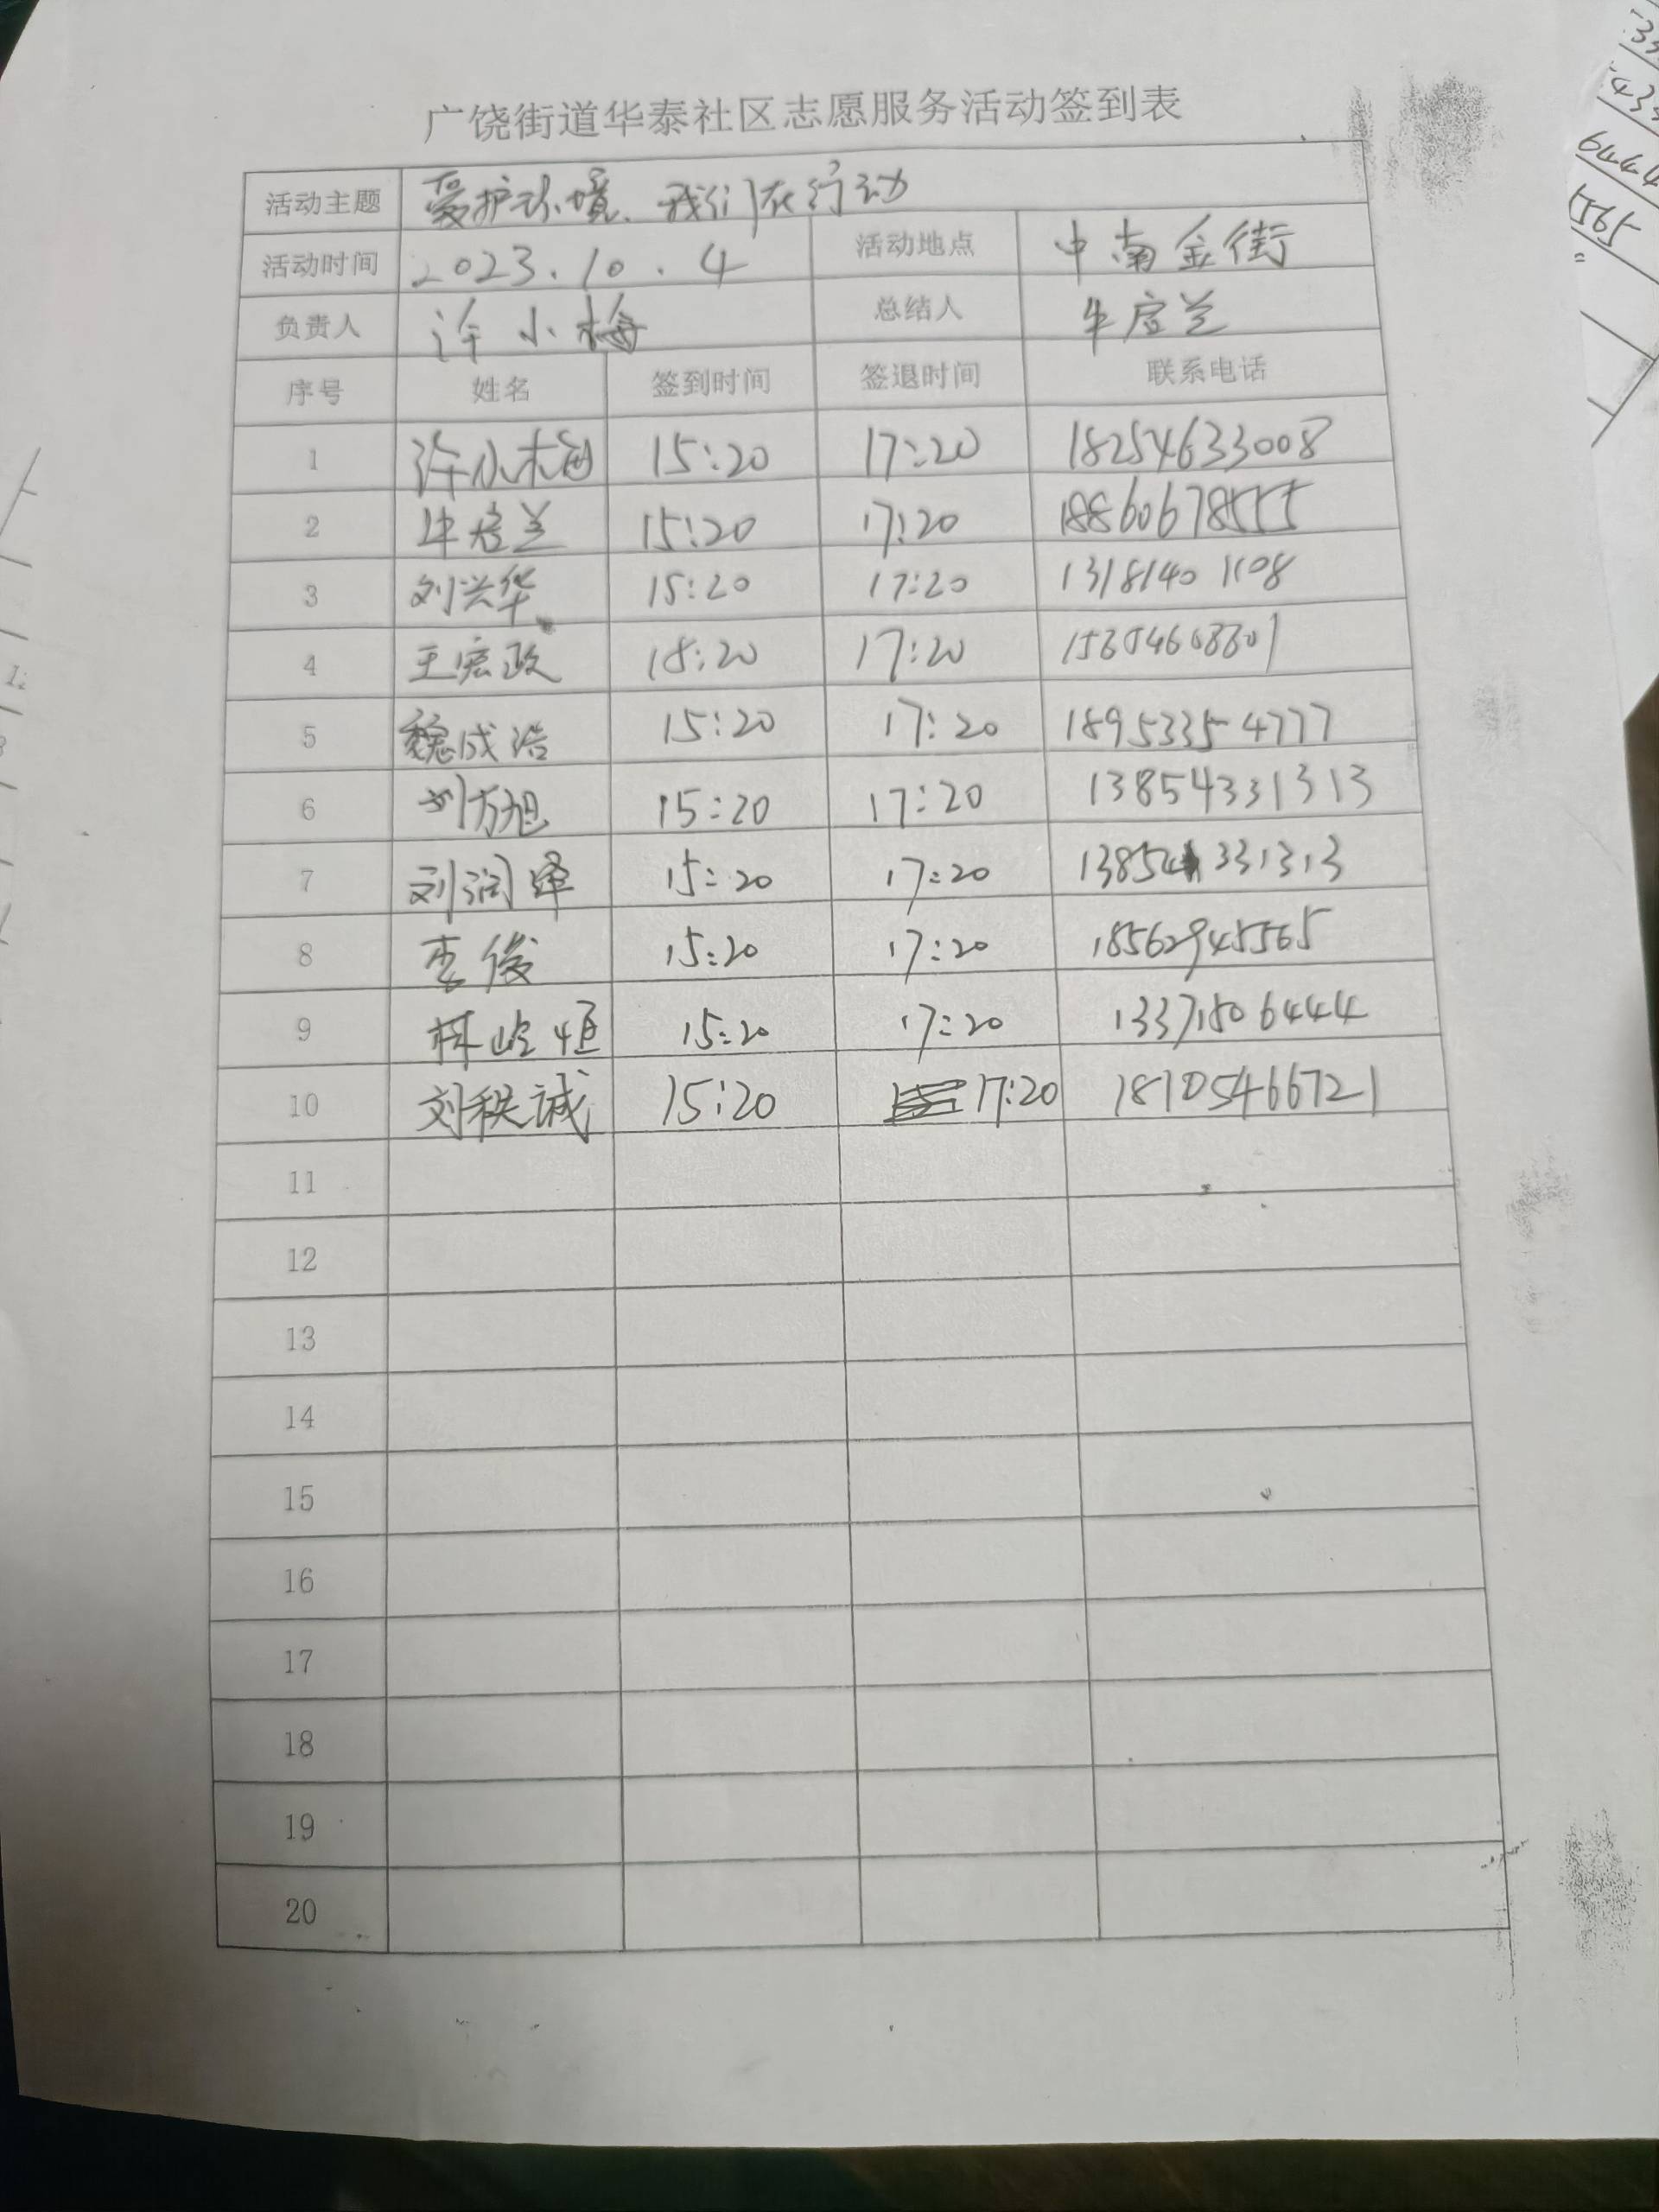 广饶街道华泰社区志愿服务活动签到表
活动主题 爱护环境、我们在行动
活动时间 2023.10.4 活动地点 中南金街
负责人 许小梅 总结人 牛启兰
序号 姓名 签到时间 签退时间 联系电话
1 许小梅 15:20 17:20 18254633008
2 牛启兰 15:20 17:20 18860678555
3 刘兴华 15:20 17:20 13181401108
4 王宏政 15:20 17:20
5 魏成浩 15:20 17:20 18953354777
6 刘方旭 15:20 17:20 13854331313
7 刘润泽 15:20 17:20 13854331313
8 李俊 15:20 17:20 18562945565
9 林屹恒 15:20 17:20 13371506444
10 刘秩诚 15:20 17:20 18105466721
11
12
13
14
15
16
17
18
19
20